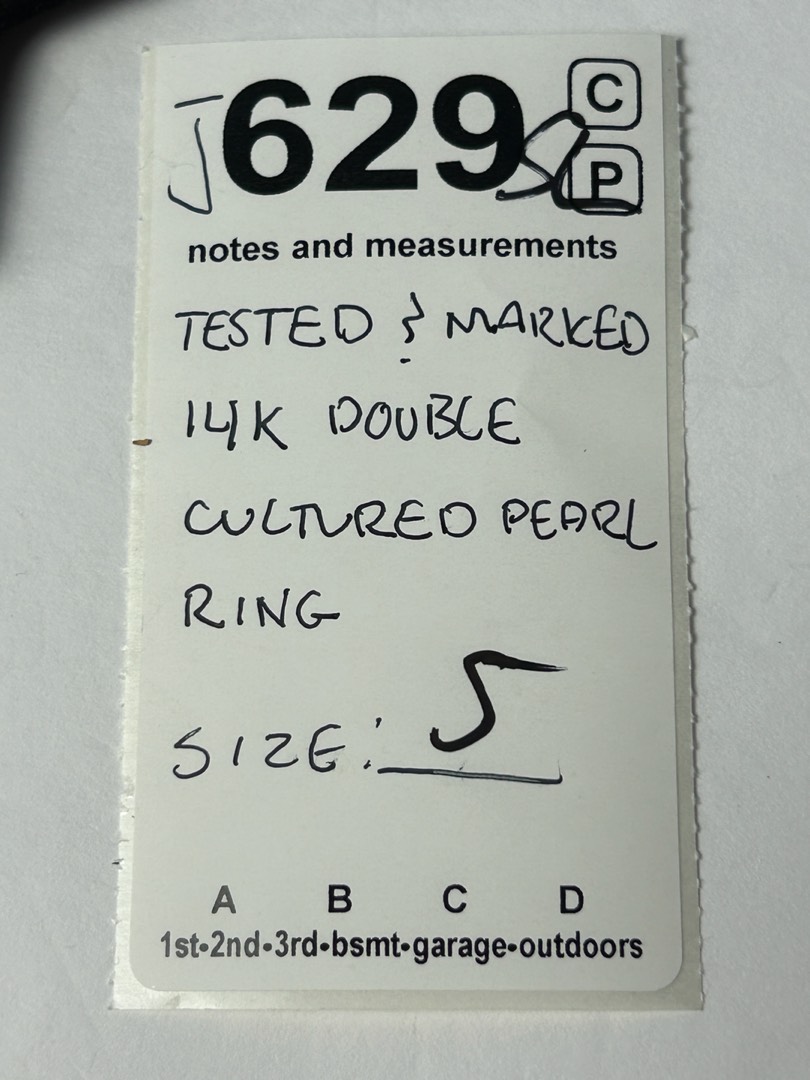 J629 C
P
notes and measurements
TESTED & MARKED
14K DOUBLE
CULTURED PEARL
RING
SIZE: 5
A B C D
1st•2nd•3rd•bsmt•garage•outdoors